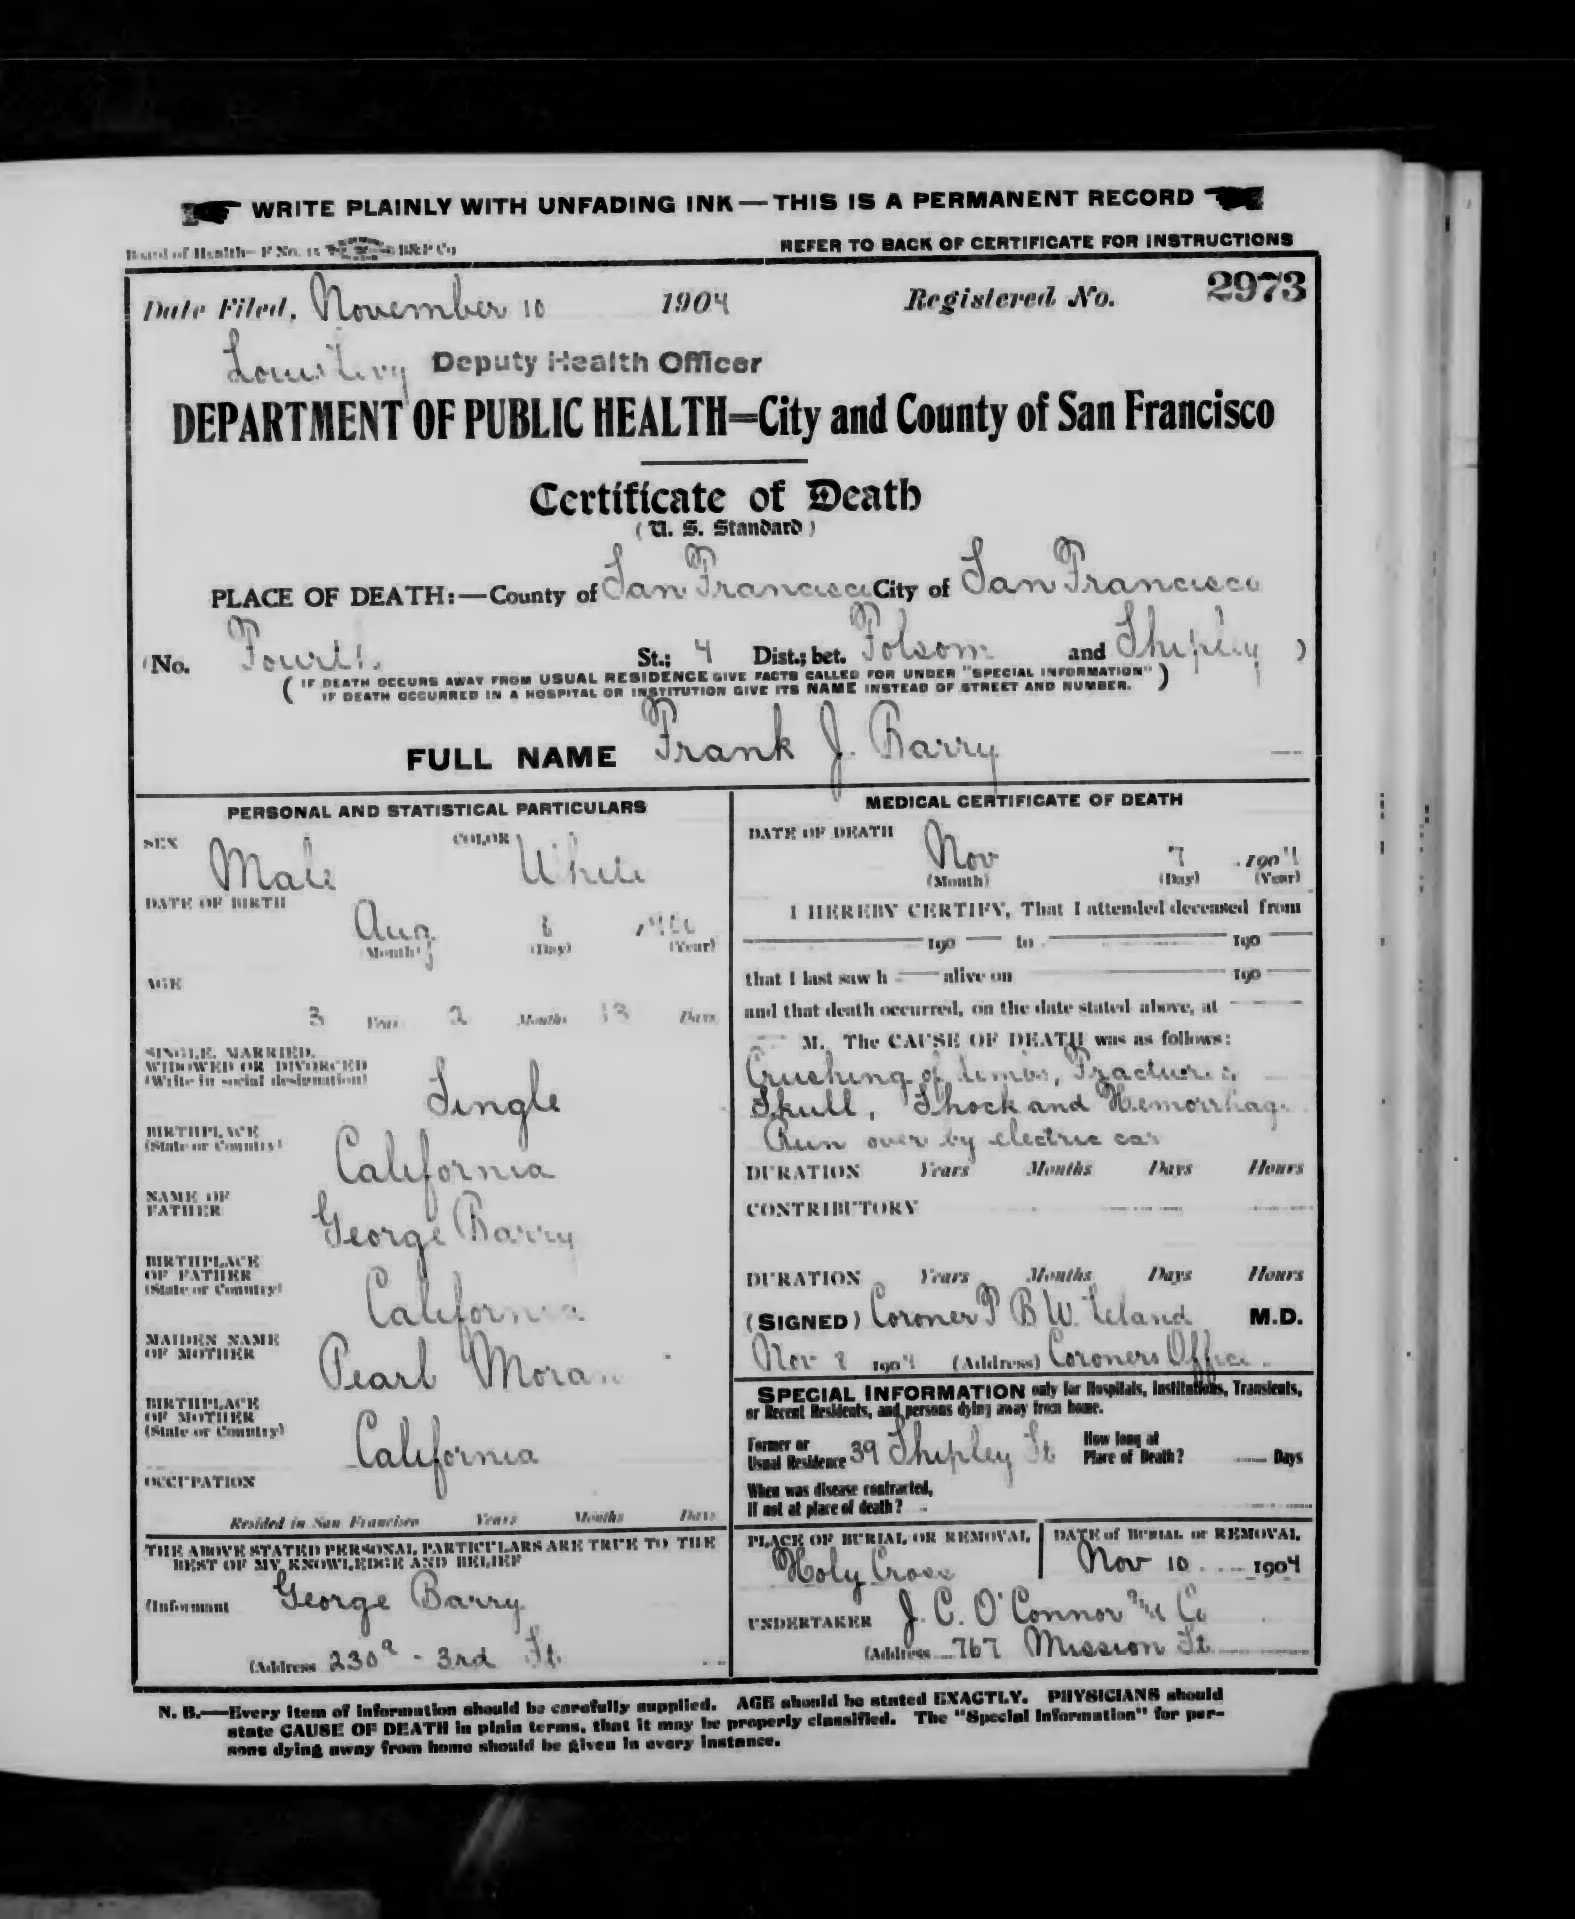 WRITE PLAINLY WITH UNFADING INK — THIS IS A PERMANENT RECORD
Board of Health—F No. 15 B&P Co
REFER TO BACK OF CERTIFICATE FOR INSTRUCTIONS
Date Filed, November 10 1904 Registered No. 2973
Louis Levy Deputy Health Officer
DEPARTMENT OF PUBLIC HEALTH=City and County of San Francisco
Certificate of Death
(U. S. Standard)
PLACE OF DEATH:—County of San Francisco City of San Francisco
(No. Fourth St.; 4 Dist.; bet. Folsom and Shipley )
( IF DEATH OCCURS AWAY FROM USUAL RESIDENCE GIVE FACTS CALLED FOR UNDER "SPECIAL INFORMATION" )
IF DEATH OCCURRED IN A HOSPITAL OR INSTITUTION GIVE ITS NAME INSTEAD OF STREET AND NUMBER.
FULL NAME Frank J. Barry
PERSONAL AND STATISTICAL PARTICULARS
SEX Male COLOR White
DATE OF BIRTH
Aug
(Month) (Day) (Year)
AGE
3 Years 2 Months 13 Days
SINGLE, MARRIED,
WIDOWED OR DIVORCED
(Write in social designation) Single
BIRTHPLACE
(State or Country) California
NAME OF
FATHER George Barry
BIRTHPLACE
OF FATHER
(State or Country) California
MAIDEN NAME
OF MOTHER Pearl Moran
BIRTHPLACE
OF MOTHER
(State or Country) California
OCCUPATION
Resided in San Francisco Years Months Days
THE ABOVE STATED PERSONAL PARTICULARS ARE TRUE TO THE
BEST OF MY KNOWLEDGE AND BELIEF
(Informant George Barry
(Address 230a - 3rd St.
MEDICAL CERTIFICATE OF DEATH
DATE OF DEATH
Nov 7 1904
(Month) (Day) (Year)
I HEREBY CERTIFY, That I attended deceased from
190 to 190
that I last saw h alive on 190
and that death occurred, on the date stated above, at
M. The CAUSE OF DEATH was as follows:
Crushing of limbs, Fracture
Skull, Shock and Hemorrhage
Run over by electric car
DURATION Years Months Days Hours
CONTRIBUTORY
DURATION Years Months Days Hours
(SIGNED) Coroner T B W. Leland M.D.
Nov 8 1904 (Address) Coroners Office
SPECIAL INFORMATION only for Hospitals, Institutions, Transients,
or Recent Residents, and persons dying away from home.
Former or
Usual Residence 39 Shipley St
How long at
Place of Death? Days
When was disease contracted,
If not at place of death?
PLACE OF BURIAL OR REMOVAL
Holy Cross
DATE of BURIAL or REMOVAL
Nov 10 1904
UNDERTAKER J. C. O'Connor and Co
(Address 767 Mission St.
N. B.—Every item of information should be carefully supplied. AGE should be stated EXACTLY. PHYSICIANS should
state CAUSE OF DEATH in plain terms, that it may be properly classified. The "Special Information" for per-
sons dying away from home should be given in every instance.